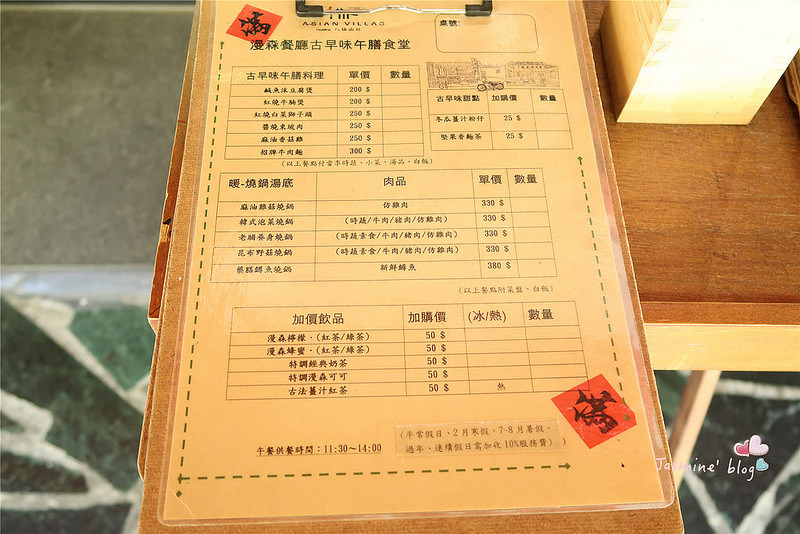 滿
ASIAN VILLAS
桌號:
漫森餐廳古早味午膳食堂
古早味午膳料理 單價 數量
鹹魚沫豆腐煲 200 $
紅燒牛腩煲 200 $
紅燒白菜獅子頭 250 $
醬燒東坡肉 250 $
麻油香菇雞 250 $
招牌牛肉麵 300 $
(以上餐點付當季時蔬、小菜、湯品、白飯)
古早味甜點 加購價 數量
冬瓜薑汁粉仔 25 $
堅果香麵茶 25 $
暖-燒鍋湯底 肉品 單價 數量
麻油雞菇燒鍋 仿雞肉 330 $
韓式泡菜燒鍋 (時蔬/牛肉/豬肉/仿雞肉) 330 $
老滷養身燒鍋 (時蔬素食/牛肉/豬肉/仿雞肉) 330 $
昆布野菇燒鍋 (時蔬素食/牛肉/豬肉/仿雞肉) 330 $
藥膳鱘魚燒鍋 新鮮鱘魚 380 $
(以上餐點附菜盤、白飯)
加價飲品 加購價 (冰/熱) 數量
漫森檸檬.(紅茶/綠茶) 50 $
漫森蜂蜜.(紅茶/綠茶) 50 $
特調經典奶茶 50 $
特調漫森可可 50 $
古法薑汁紅茶 50 $ 熱
滿
午餐供餐時間:11:30~14:00
(平常假日、2月寒假、7-8月暑假、
過年、連續假日需加收10%服務費)
Jasmine' blog